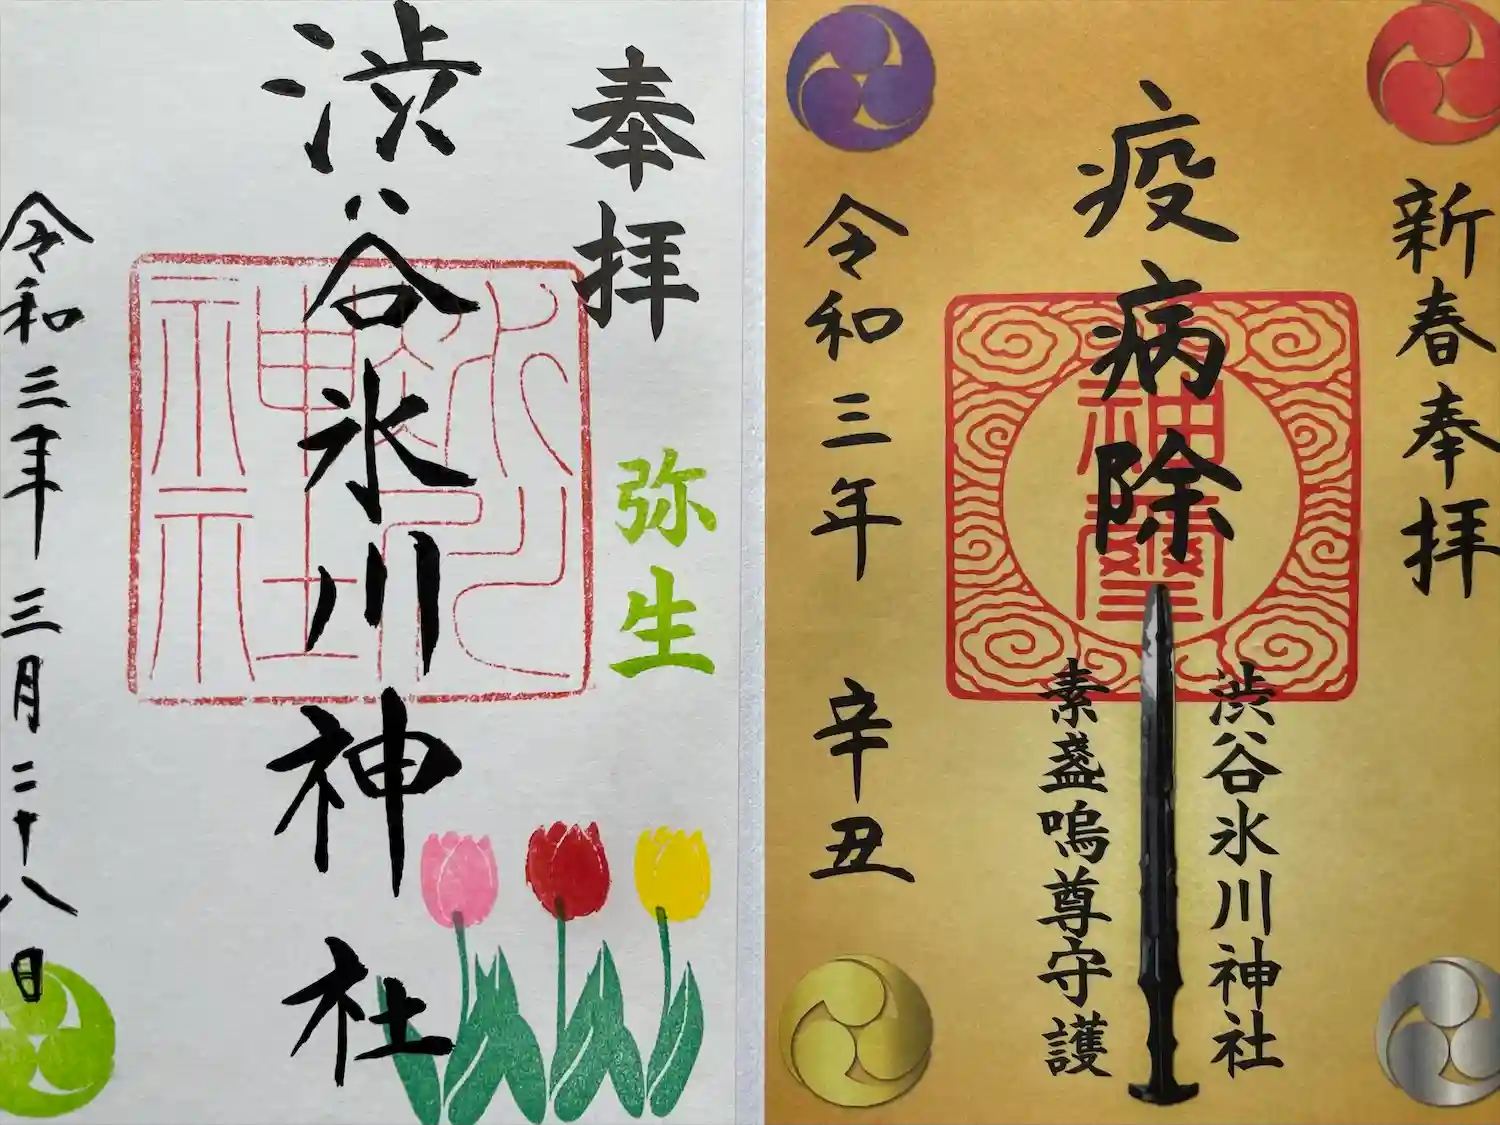 奉拝
弥生
渋谷氷川神社
氷川
神社
令和三年三月二十八日
新春奉拝
疫病除
神璽
渋谷氷川神社
素盞嗚尊守護
令和三年 辛丑